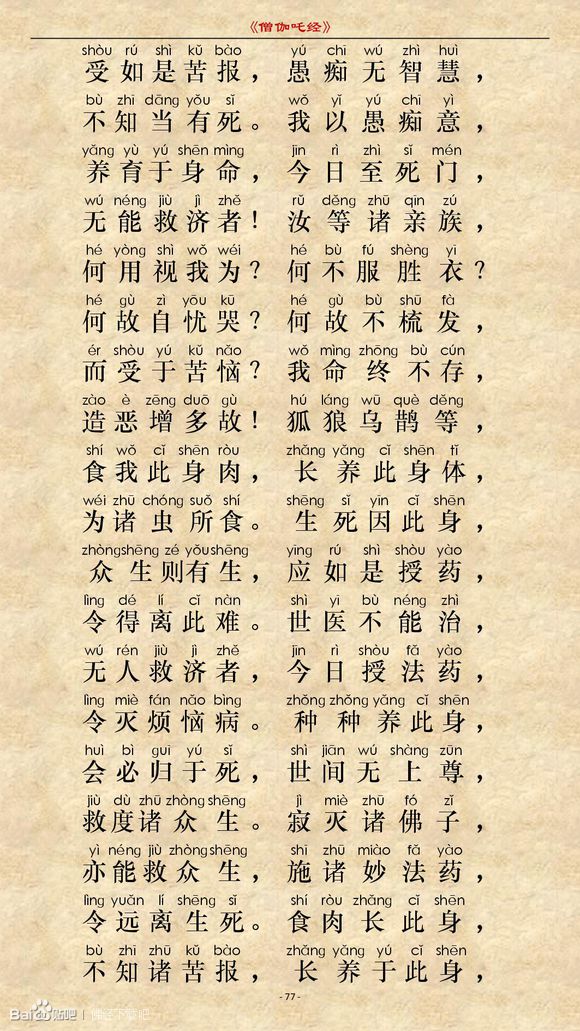 《僧伽吒经》
shòu rú shì kǔ bào yú chī wú zhì huì
受如是苦报，愚痴无智慧，
bù zhī dāng yǒu sǐ wǒ yǐ yú chī yì
不知当有死。我以愚痴意，
yǎng yù yú shēn mìng jīn rì zhì sǐ mén
养育于身命，今日至死门，
wú néng jiù jì zhě rǔ děng zhū qīn zú
无能救济者！汝等诸亲族，
hé yòng shì wǒ wéi hé bù fú shèng yī
何用视我为？何不服胜衣？
hé gù zì yōu kū hé gù bù shū fà
何故自忧哭？何故不梳发，
ér shòu yú kǔ nǎo wǒ mìng zhōng bù cún
而受于苦恼？我命终不存，
zào è zēng duō gù hú láng wū què děng
造恶增多故！狐狼乌鹊等，
shí wǒ cǐ shēn ròu zhǎng yǎng cǐ shēn tǐ
食我此身肉，长养此身体，
wéi zhū chóng suǒ shí shēng sǐ yīn cǐ shēn
为诸虫所食。生死因此身，
zhòngshēng zé yǒushēng yīng rú shì shòu yào
众生则有生，应如是授药，
lìng dé lí cǐ nàn shì yī bù néng zhì
令得离此难。世医不能治，
wú rén jiù jì zhě jīn rì shòu fǎ yào
无人救济者，今日授法药，
lìng miè fán nǎo bìng zhǒng zhǒng yǎng cǐ shēn
令灭烦恼病。种种养此身，
huì bì guī yú sǐ shì jiān wú shàng zūn
会必归于死，世间无上尊，
jiù dù zhū zhòng shēng jì miè zhū fó zǐ
救度诸众生。寂灭诸佛子，
yì néng jiù zhòngshēng shī zhū miào fǎ yào
亦能救众生，施诸妙法药，
lìng yuǎn lí shēng sǐ shí ròu zhǎng cǐ shēn
令远离生死。食肉长此身，
bù zhī zhū kǔ bào zhǎng yǎng yú cǐ shēn
不知诸苦报，长养于此身，
- 77 -
Bai贴吧 | 佛经下载吧